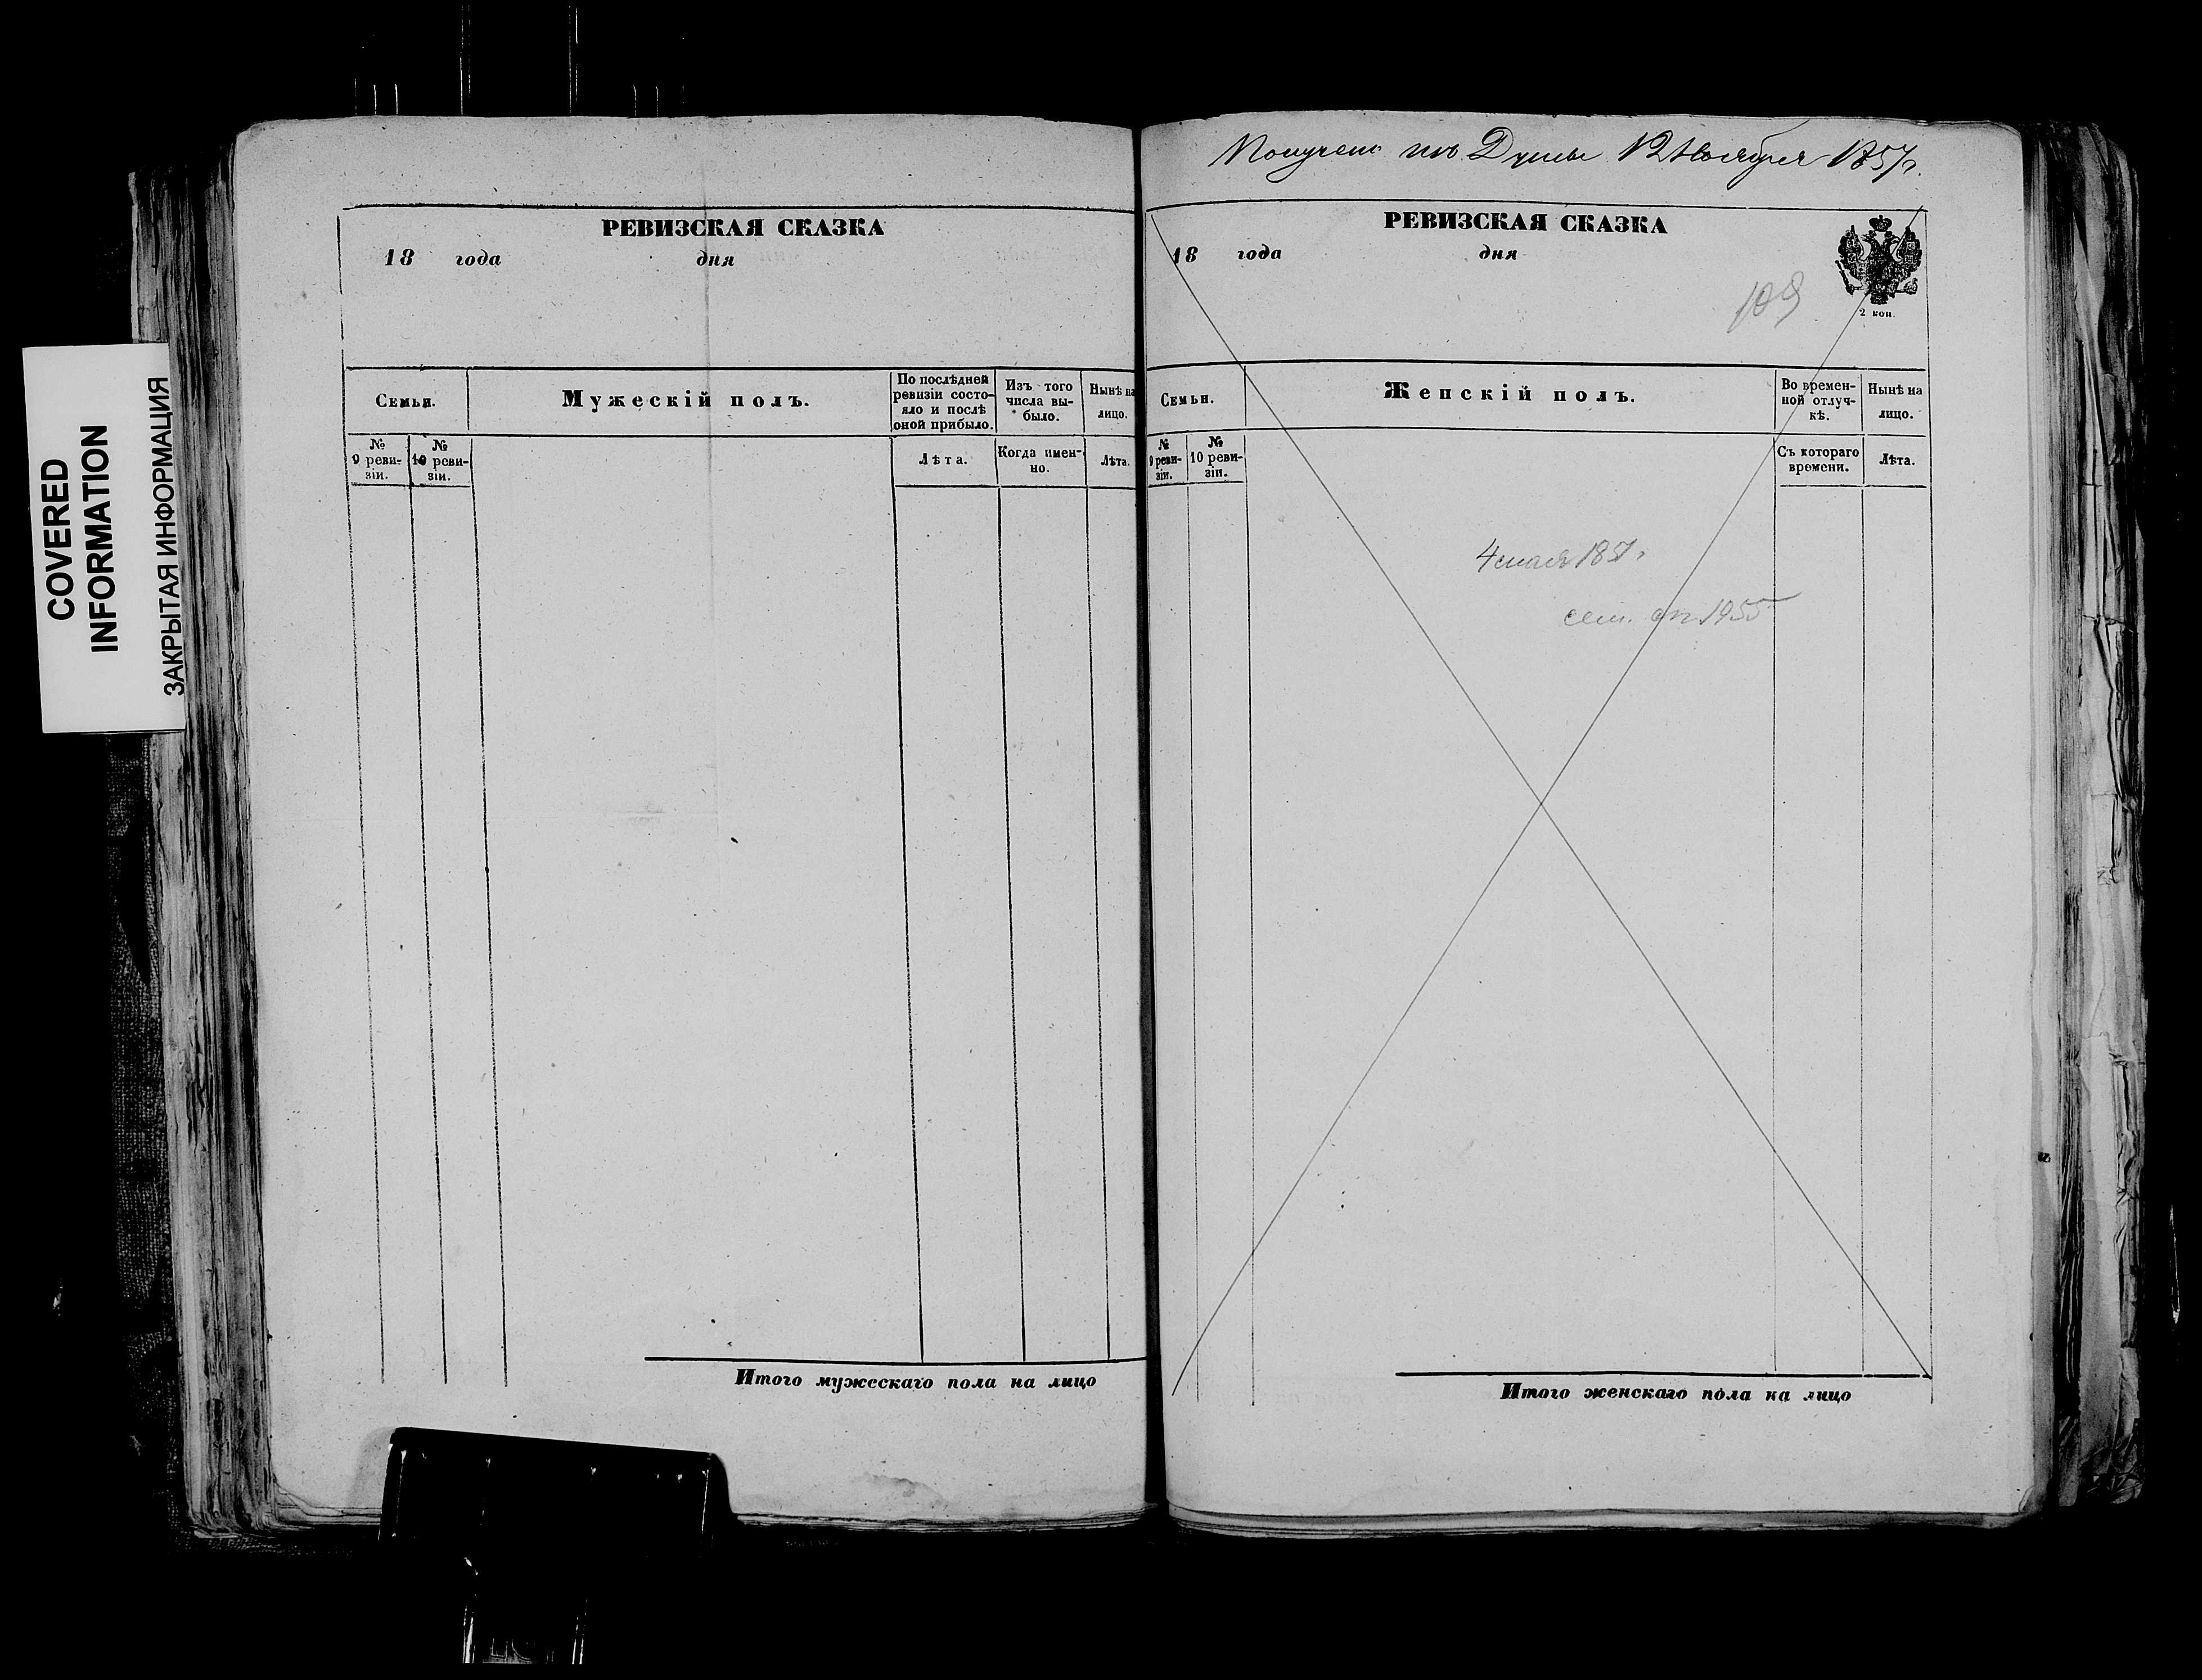 COVERED
INFORMATION
ЗАКРЫТАЯ ИНФОРМАЦИЯ
РЕВИЗСКАЯ СКАЗКА
18 года дня
Семьи.
Мужескій полъ.
По послѣдней
ревизіи состо-
яло и послѣ
оной прибыло.
Изъ того
числа вы-
было.
Нынѣ на
лицо.
№
9 реви-
зіи.
№
10 реви-
зіи.
Лѣта.
Когда имен-
но.
Лѣта.
Итого мужескаго пола на лицо
Получено изъ Думы 12 Ноября 1857 г.
РЕВИЗСКАЯ СКАЗКА
18 года дня
2 коп.
109
Семьи.
Женскій полъ.
Во времен-
ной отлуч-
кѣ.
Нынѣ на
лицо.
№
9 реви-
зіи.
№
10 реви-
зіи.
Съ котораго
времени.
Лѣта.
1955
Итого женскаго пола на лицо